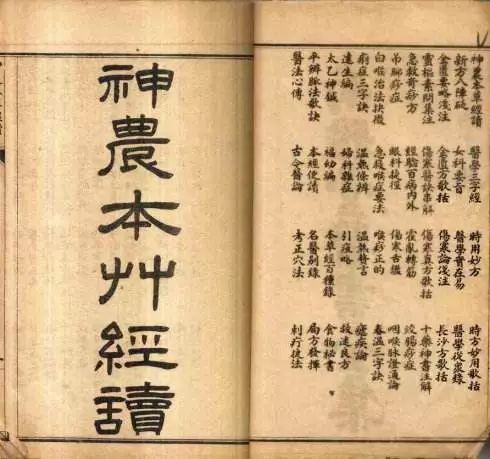 神農本草經讀 醫學三字經 時用妙方 時方妙用歌括
新方八陣砭 女科要旨 醫學實在易 醫學從衆錄
金匱要略淺注 金匱方歌括 傷寒論淺注 長沙方歌括
靈樞素問集注 傷寒醫訣串解 傷寒真方歌括 十藥神書注解
急救奇痧方 經驗百病內外 霍亂轉筋 絞腸痧症
弔腳痧症 眼科捷徑 傷寒舌鑑 咽喉脉證通論
白喉治法抉微 急救喉症要法 喉痧正的 春溫三字訣
痢症三字訣 溫熱條辨 溫熱贅言 瘧疾論
達生編 婦科雜症 引痘略 救迷良方
太乙神鍼 福幼編 本草經百種錄 食物秘書
平辨脉法歌訣 本經便讀 名醫別錄 局方發揮
醫法心傳 古今醫論 考正穴法 刺疔捷法
神農本艸經讀